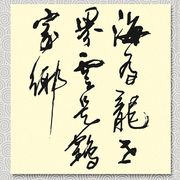 海为龍世
界雲是鶴
家鄉